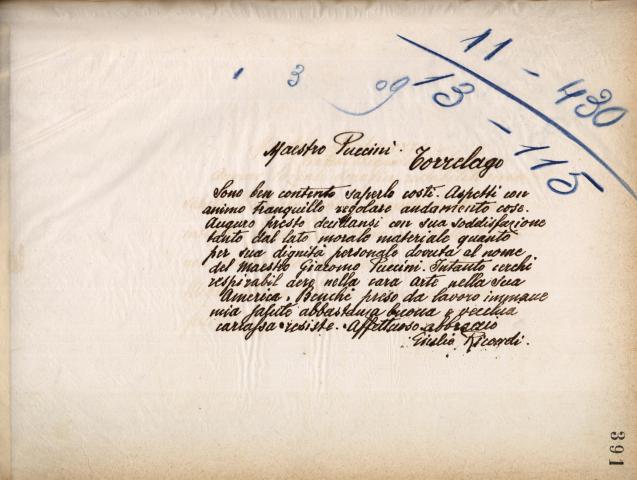 11 - 430
1 3 09 13 - 115
Maestro Puccini. Torrelago
Sono ben contento saperlo costì. Aspetti con
animo tranquillo regolare andamento cose.
Auguro presto con sua soddisfazione
tanto dal lato morale materiale quanto
per sua dignità personale dovuta al nome
del Maestro Giacomo Puccini. Intanto cerchi
respirabil aere nella cara arte nella sua
America. Benchè preso da lavoro immane
mia salute abbastanza buona e vecchia
carcassa resiste. Affettuoso abbraccio
Giulio Ricordi.
391